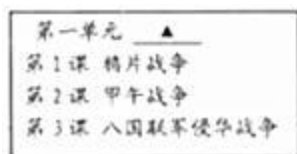 第一单元 ▲
第1课 鸦片战争
第2课 甲午战争
第3课 八国联军侵华战争